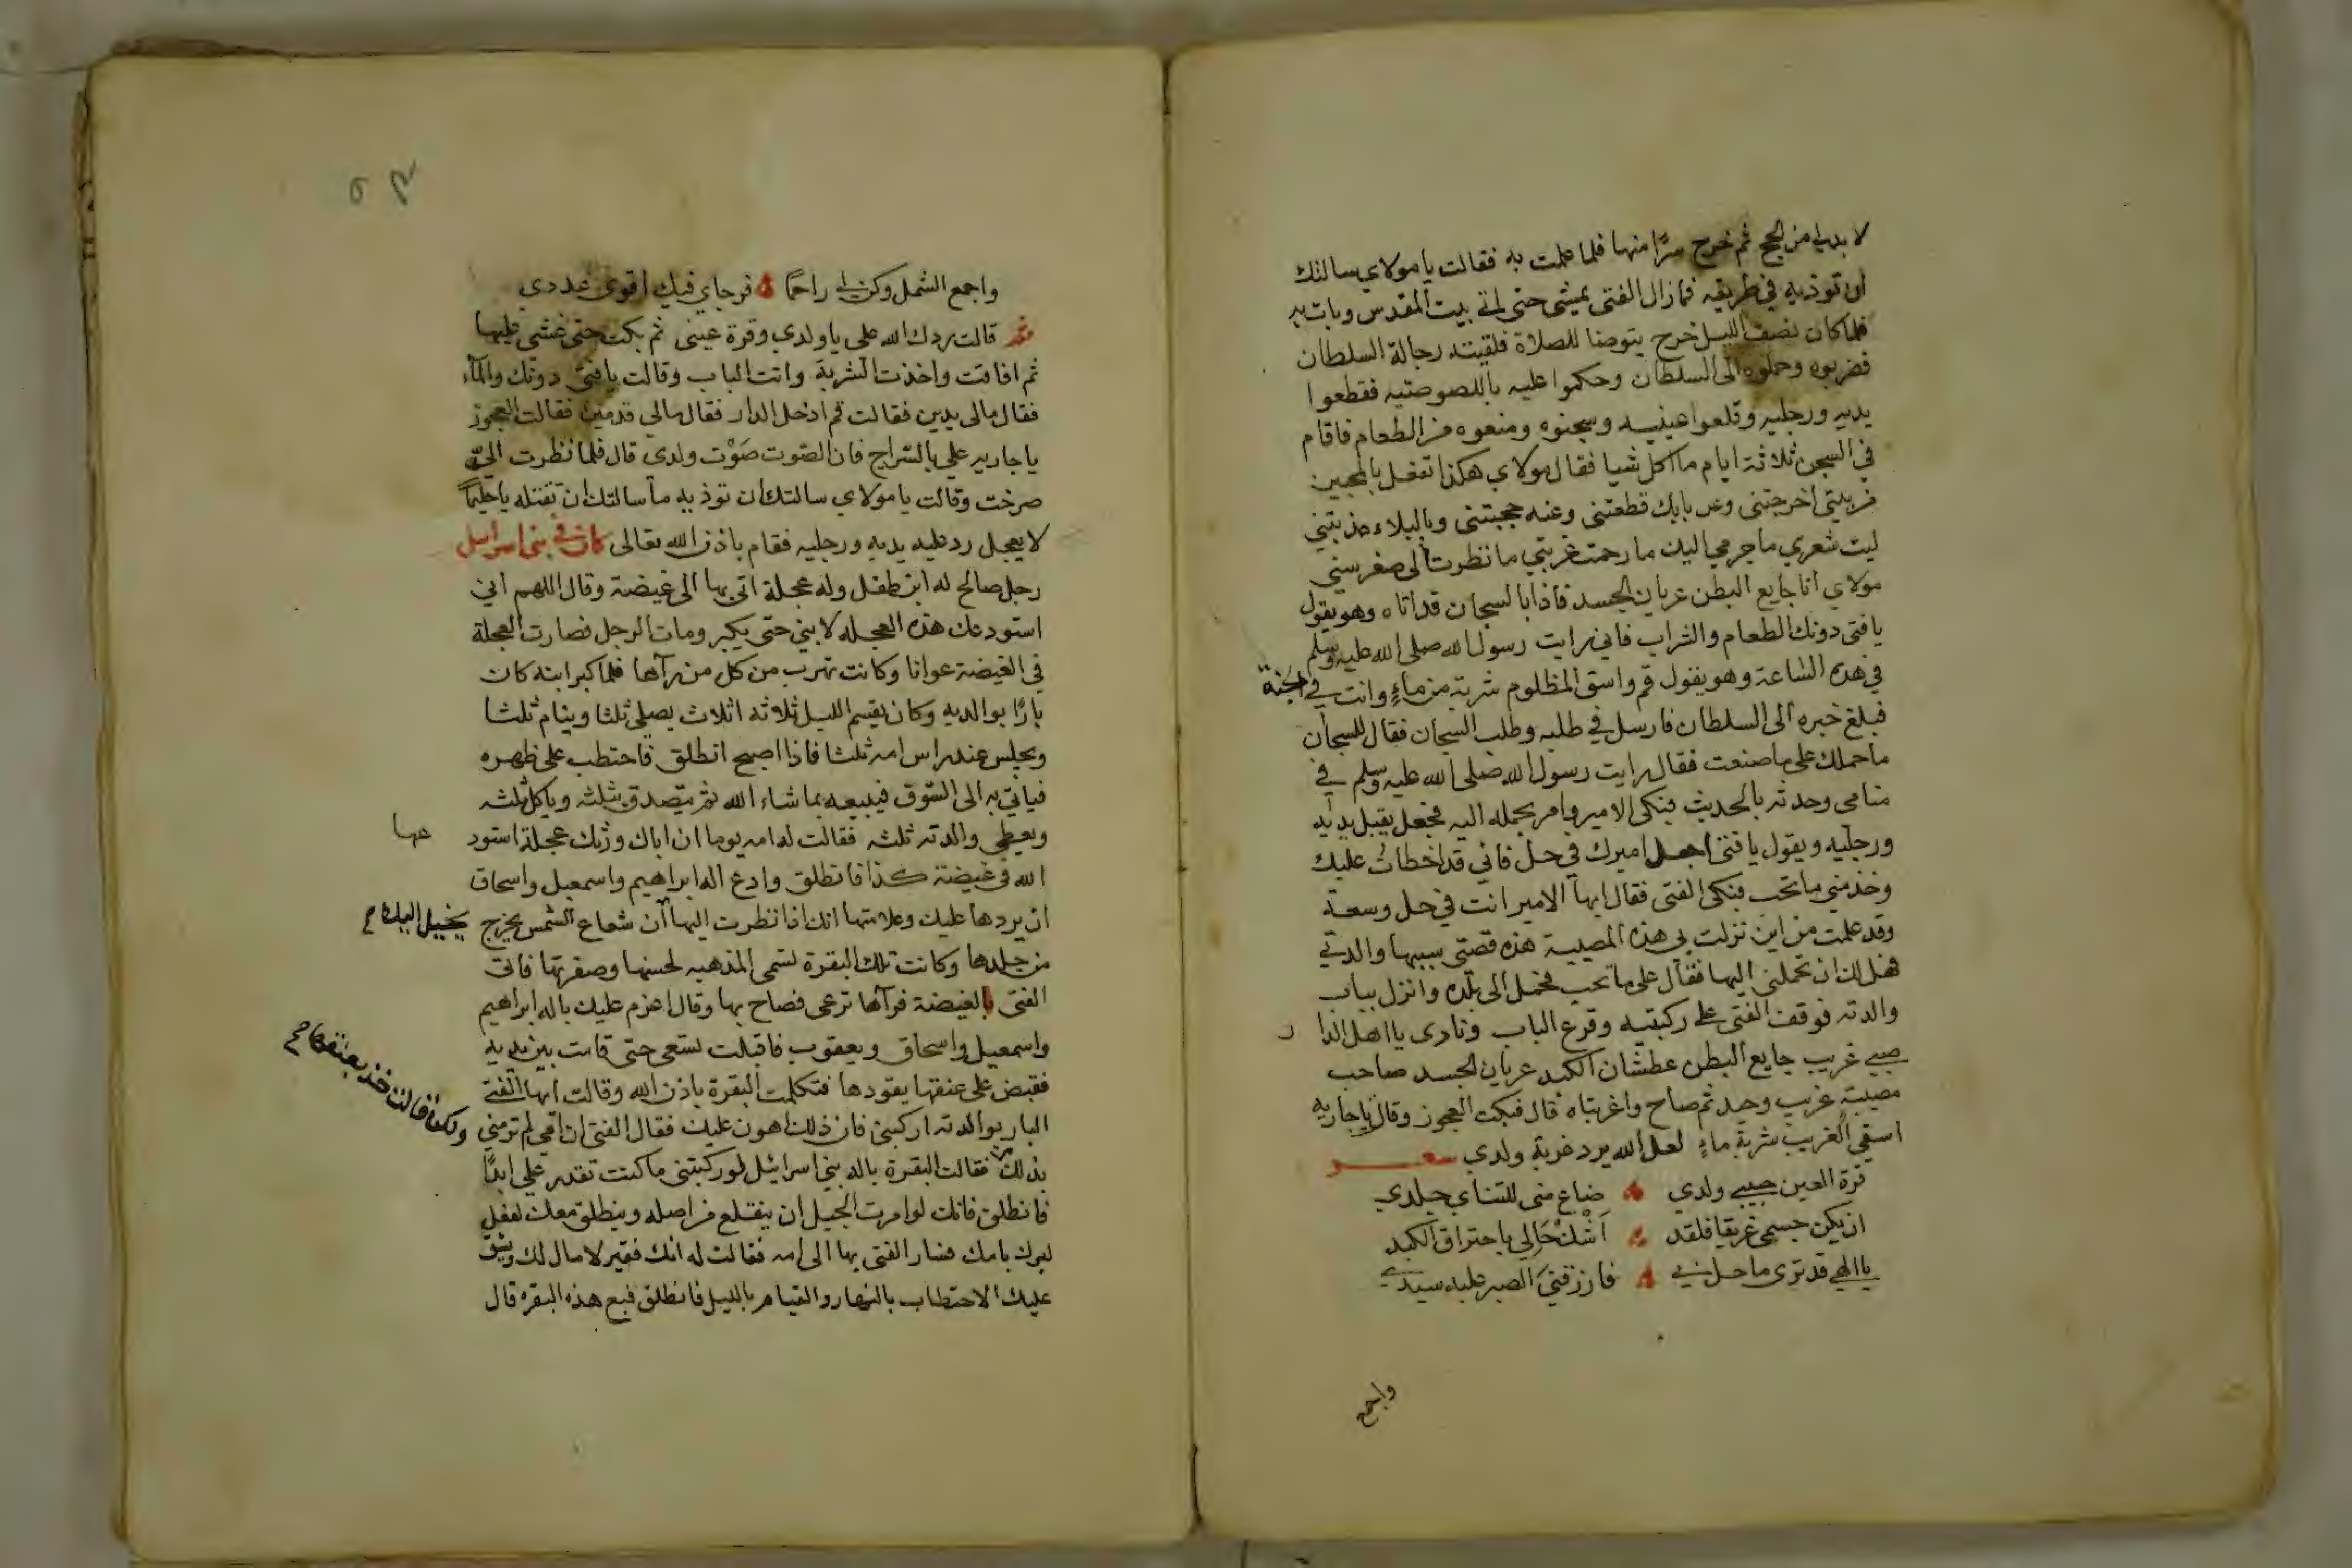 لا بد لي من الحج ثم خرج سرًا منها فلما علمت به فقالت يا مولاي سالتك
ان توذيه في طريقه فما زال الفتى يمشي حتى اتى بيت المقدس وبات به
فلما كان نصف الليل خرج يتوضا للصلاة فلقيته رجالة السلطان
فضربوه وحملوه الى السلطان وحكموا عليه باللصوصيه فقطعوا
يديه ورجليه وقلعوا عينيه وسجنوه ومنعوه من الطعام فاقام
في السجن ثلاثة ايام ما اكل شيا فقال مولاي هكذا تفعل بالمحبين
من بيتي اخرجتني وعن بابك قطعتني وعنه حجبتني وبالبلاء عذبتني
ليت شعري ما جرمي اليك ما رحمت غربتي ما نظرت الى صغر سني
مولاي انا جايع البطن عريان الجسد فاذا بالسجان قد اتاه وهو يقول
يا فتى دونك الطعام والشراب فاني رايت رسول الله صلى الله عليه وسلم
في هذه الساعة وهو يقول قم واسق المظلوم شربة من ماءٍ وانت في الجنة
فبلغ خبره الى السلطان فارسل في طلبه وطلب السجان فقال للسجان
ما حملك على ما صنعت فقال رايت رسول الله صلى الله عليه وسلم في
منامي وحدثه بالحديث فبكى الامير وامر بحمله اليه فجعل يقبل يديه
ورجليه ويقول يا فتى اجعل اميرك في حل فاني قد اخطات عليك
وخذ مني ما تحب فبكى الفتى فقال ايها الامير انت في حل وسعة
وقد علمت من اين نزلت بي هذه المصيبة هذه قصتي سببها والدتي
فهل لك ان تحملني اليها فقال على ما تحب فحمل الى بلده وانزل بباب
والدته فوقف الفتى على ركبتيه وقرع الباب ونادى يا اهل الدار
صبي غريب جايع البطن عطشان الكبد عريان الجسد صاحب
مصيبة غريب وحيد ثم صاح واغربتاه قال فبكت العجوز وقال يا جاريه
اسقي الغريب شربة ماءٍ لعل الله يرد غربة ولدي شعر
قرة العين حبيبي ولدي ضاع مني للتناي جلدي
ان يكن جسمي غريقا فلقد اشك حالي باحتراق الكبد
يا الهي قد ترى ما حل بي فارزقني الصبر عليه سيدي
واجمع
واجمع الشمل وكن لي راحمًا فرجاي فيك اقوى عددي
ثم قالت يردك الله علي يا ولدي وقرة عيني ثم بكت حتى غشي عليها
ثم افاقت واخذت الشربة واتت الباب وقالت يا فتى دونك والماء
فقال مالي يدين فقالت قم ادخل الدار فقال مالي قدمين فقالت العجوز
يا جاريه علي بالسراج فان الصوت صَوْت ولدي قال فلما نظرت اليه
صرخت وقالت يا مولاي سالتك ان توذيه ما سالتك ان تقتله يا حليمًا
لا يعجل رد عليه يديه ورجليه فقام باذن الله تعالى كان في بني اسرايل
رجل صالح له ابن طفل وله عجلة اتى بها الى غيضة وقال اللهم اني
استودعك هذه العجله لابني حتى يكبر ومات الرجل فصارت العجلة
في الغيضة عوانا وكانت تهرب من كل من رآها فلما كبر ابنه كان
بارًا بوالديه وكان يقسم الليل ثلاثه اثلاث يصلي ثلثا وينام ثلثا
ويجلس عند راس امه ثلثا فاذا اصبح انطلق فاحتطب على ظهره
فياتي به الى السوق فيبيعه بما شاء الله ثم يتصدق بثلثه وياكل ثلثه
ويعطي والدته ثلثه فقالت له امه يوما ان اباك ورثك عجلة استودعها
الله في غيضة كذا فانطلق وادع اله ابراهيم واسمعيل واسحاق
ان يردها عليك وعلامتها انك اذا نظرت اليها ان شعاع الشمس يخرج يخيل اليك
من جلدها وكانت تلك البقرة تسمى المذهبه لحسنها وصفرتها فاتى
الفتى بالغيضة فرآها ترعى فصاح بها وقال اعزم عليك باله ابراهيم
واسمعيل واسحاق ويعقوب فاقبلت تسعى حتى قامت بين يديه
فقبض على عنقها يقودها فتكلمت البقرة باذن الله وقالت ايها الفتى
البار بوالدته اركبني فان ذلك اهون عليك فقال الفتى ان امي لم ترمني
ولكن قالت خذ بعنقها
بذلك فقالت البقرة باله بني اسرائيل لو ركبتني ما كنت تقدر علي ابدًا
فانطلق فانك لو امرت الجبل ان ينقلع من اصله وينطلق معك لفعل
لبرك بامك فسار الفتى بها الى امه فقالت له انك فقير لا مال لك ويشق
عليك الاحتطاب بالنهار والقيام بالليل فانطلق فبع هذه البقره قال